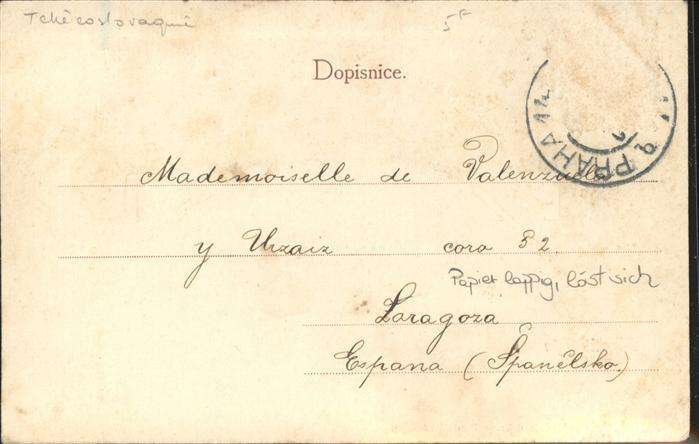 Tchécoslovaquie
5F
Dopisnice.
PRAHA
Mademoiselle de Valenzuela
y Urzaiz coro 52.
Papier lappig, löst sich
Zaragoza
Espana (Španělsko.)